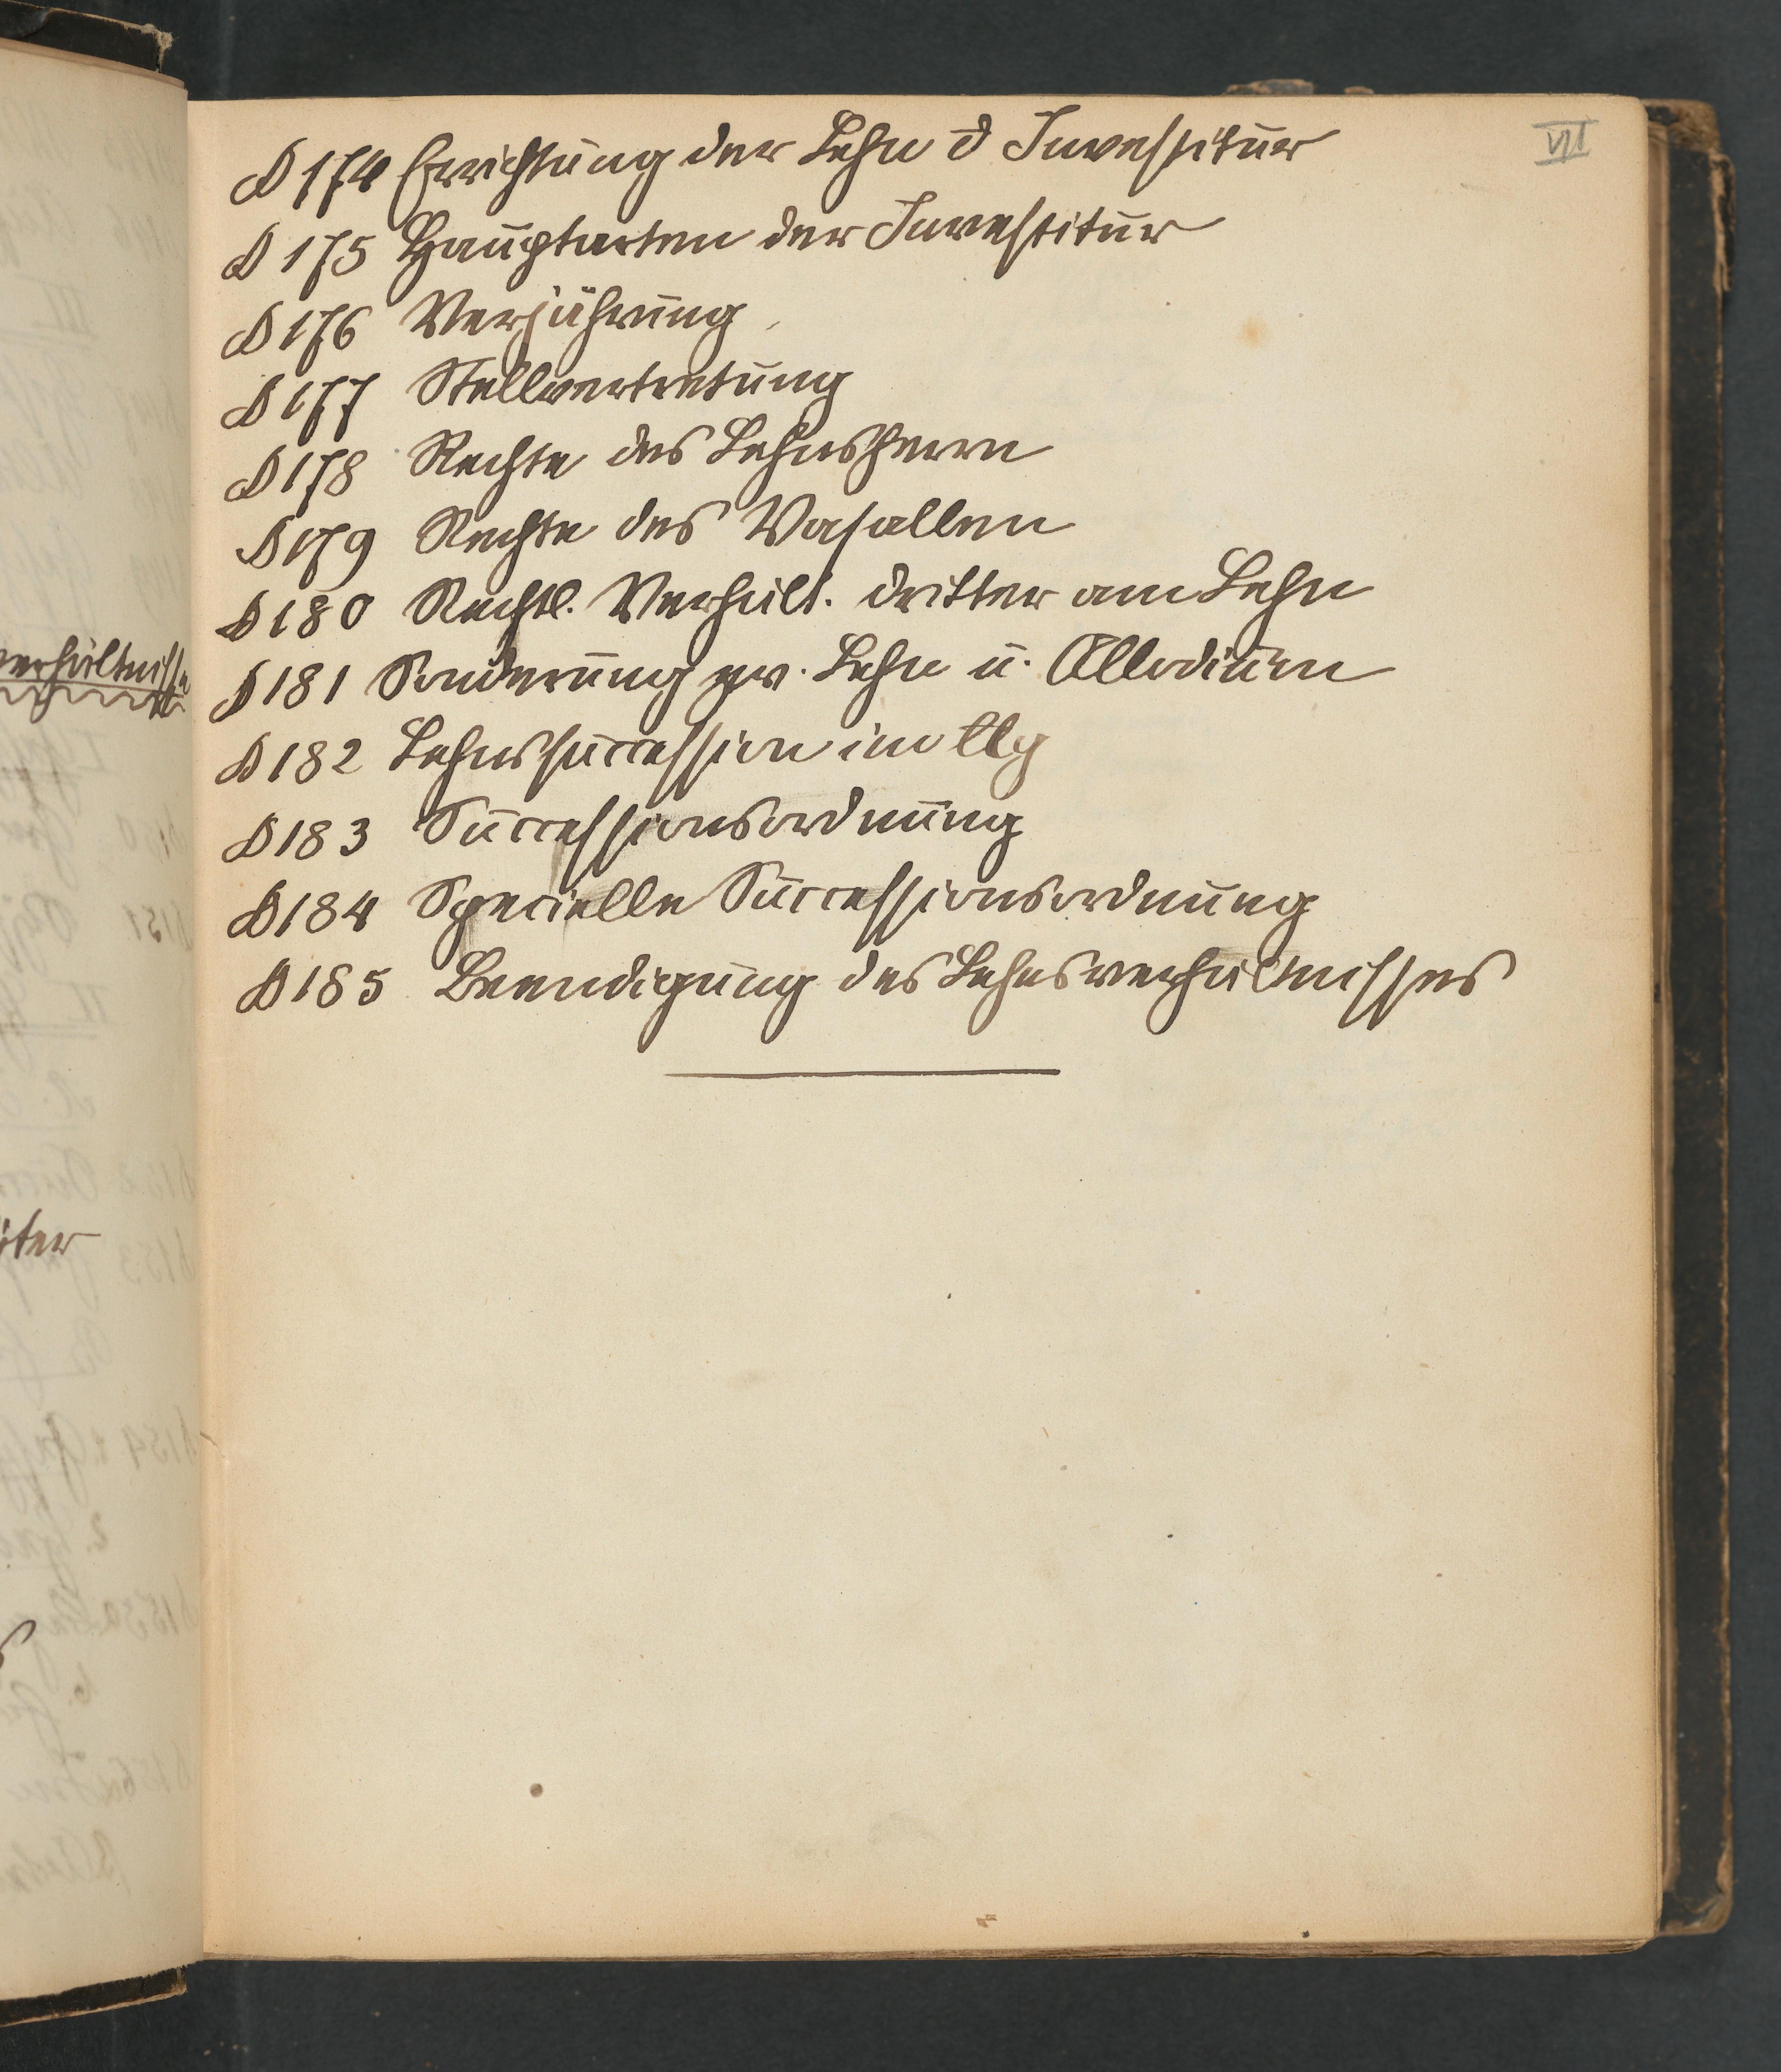 VII
§ 174 Errichtung der Lehn d Investitur
§ 175 Hauptarten der Investitur
§ 176 Verjährung
§ 177 Stellvertretung
§ 178 Rechte des Lehnsherrn
§ 179 Rechte des Vasallen
§ 180 Rechtl. Verhält. dritter am Lehn
§ 181 Sonderung zw. Lehn u. Allodium
§ 182 Lehnssuccession im Allg
§ 183 Successionsordnung
§ 184 Specielle Successionsordnung
§ 185 Beendigung des Lehnsverhältnisses
verhältnisse